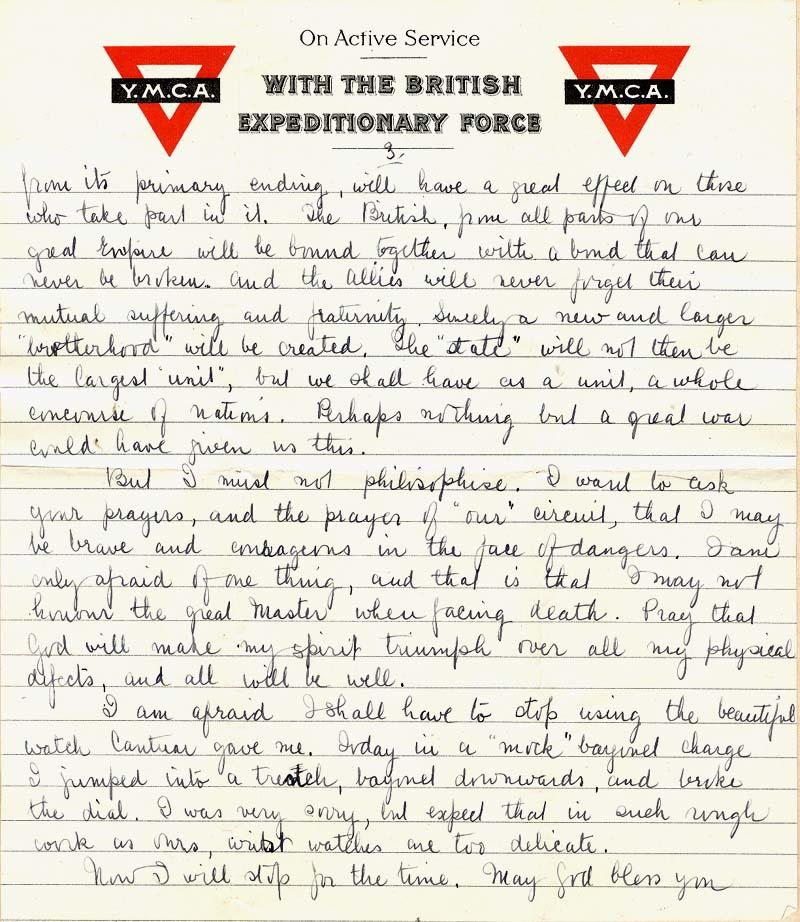 On Active Service
Y.M.C.A.
WITH THE BRITISH
Y.M.C.A.
EXPEDITIONARY FORCE
3.
from its primary ending, will have a great effect on those
who take part in it. The British, from all parts of our
great Empire will be bound together with a bond that can
never be broken. And the Allies will never forget their
mutual suffering and fraternity. Surely a new and larger
"brotherhood" will be created. The "state" will not then be
the largest "unit", but we shall have as a unit, a whole
concourse of nations. Perhaps nothing but a great war
could have given us this.
But I must not philisophise. I want to ask
your prayers, and the prayer of "our" circuit, that I may
be brave and courageous in the face of dangers. I am
only afraid of one thing, and that is that I may not
honour the great Master when facing death. Pray that
God will make my spirit triumph over all my physical
defects, and all will be well.
I am afraid I shall have to stop using the beautiful
watch Cantuar gave me. Today in a "mock" bayonet charge
I jumped into a trench, bayonet downwards, and broke
the dial. I was very sorry, but expect that in such rough
work as ours, wrist watches are too delicate.
Now I will stop for the time. May God bless you